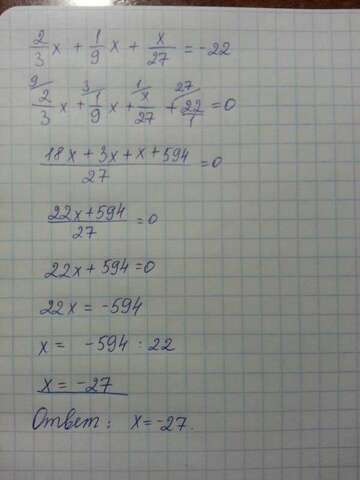 2/3 x + 1/9 x + x/27 = -22
9 3 1 27
2/3 x + 1/9 x + x/27 + 22/1 = 0
18x + 3x + x + 594 / 27 = 0
22x + 594 / 27 = 0
22x + 594 = 0
22x = -594
x = -594 : 22
x = -27
Ответ: x = -27.